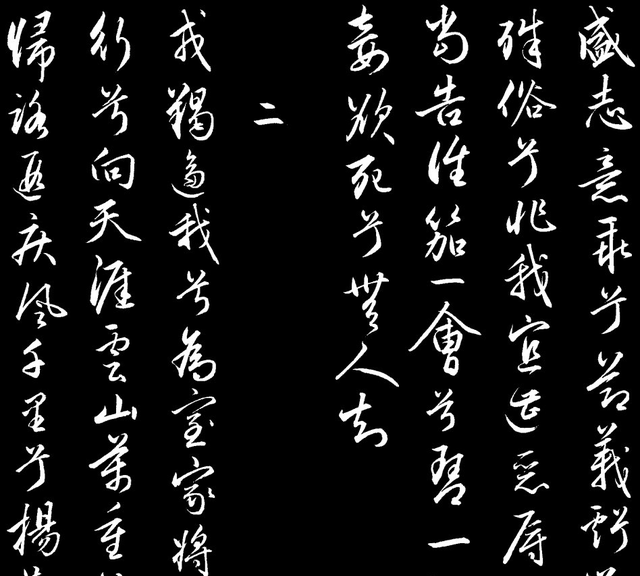 盛志意乖兮節義虧
殊俗兮非我宜遭惡辱
當告誰笳一會兮琴一
妾欲死兮無人知
二
戎羯逼我兮為室家將
行兮向天涯雲山萬重
歸路遐疾風千里兮揚